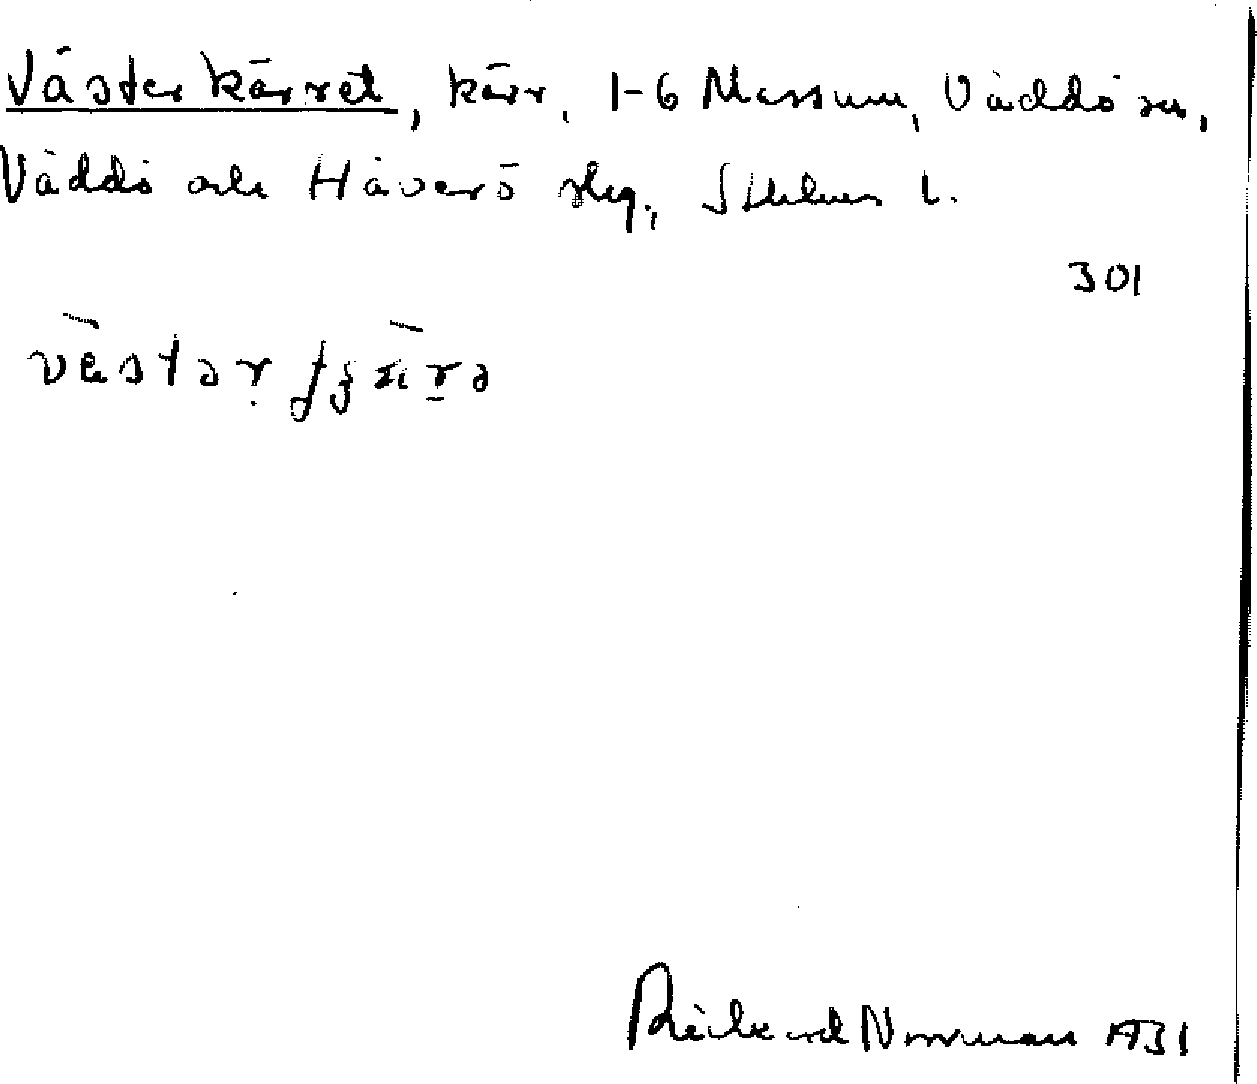 Västerkärret, kärr, 1-6 Massum, Väddö sn,
Väddö och Häverö skg., Sthlms l.
301
Rickard Norrman 1931